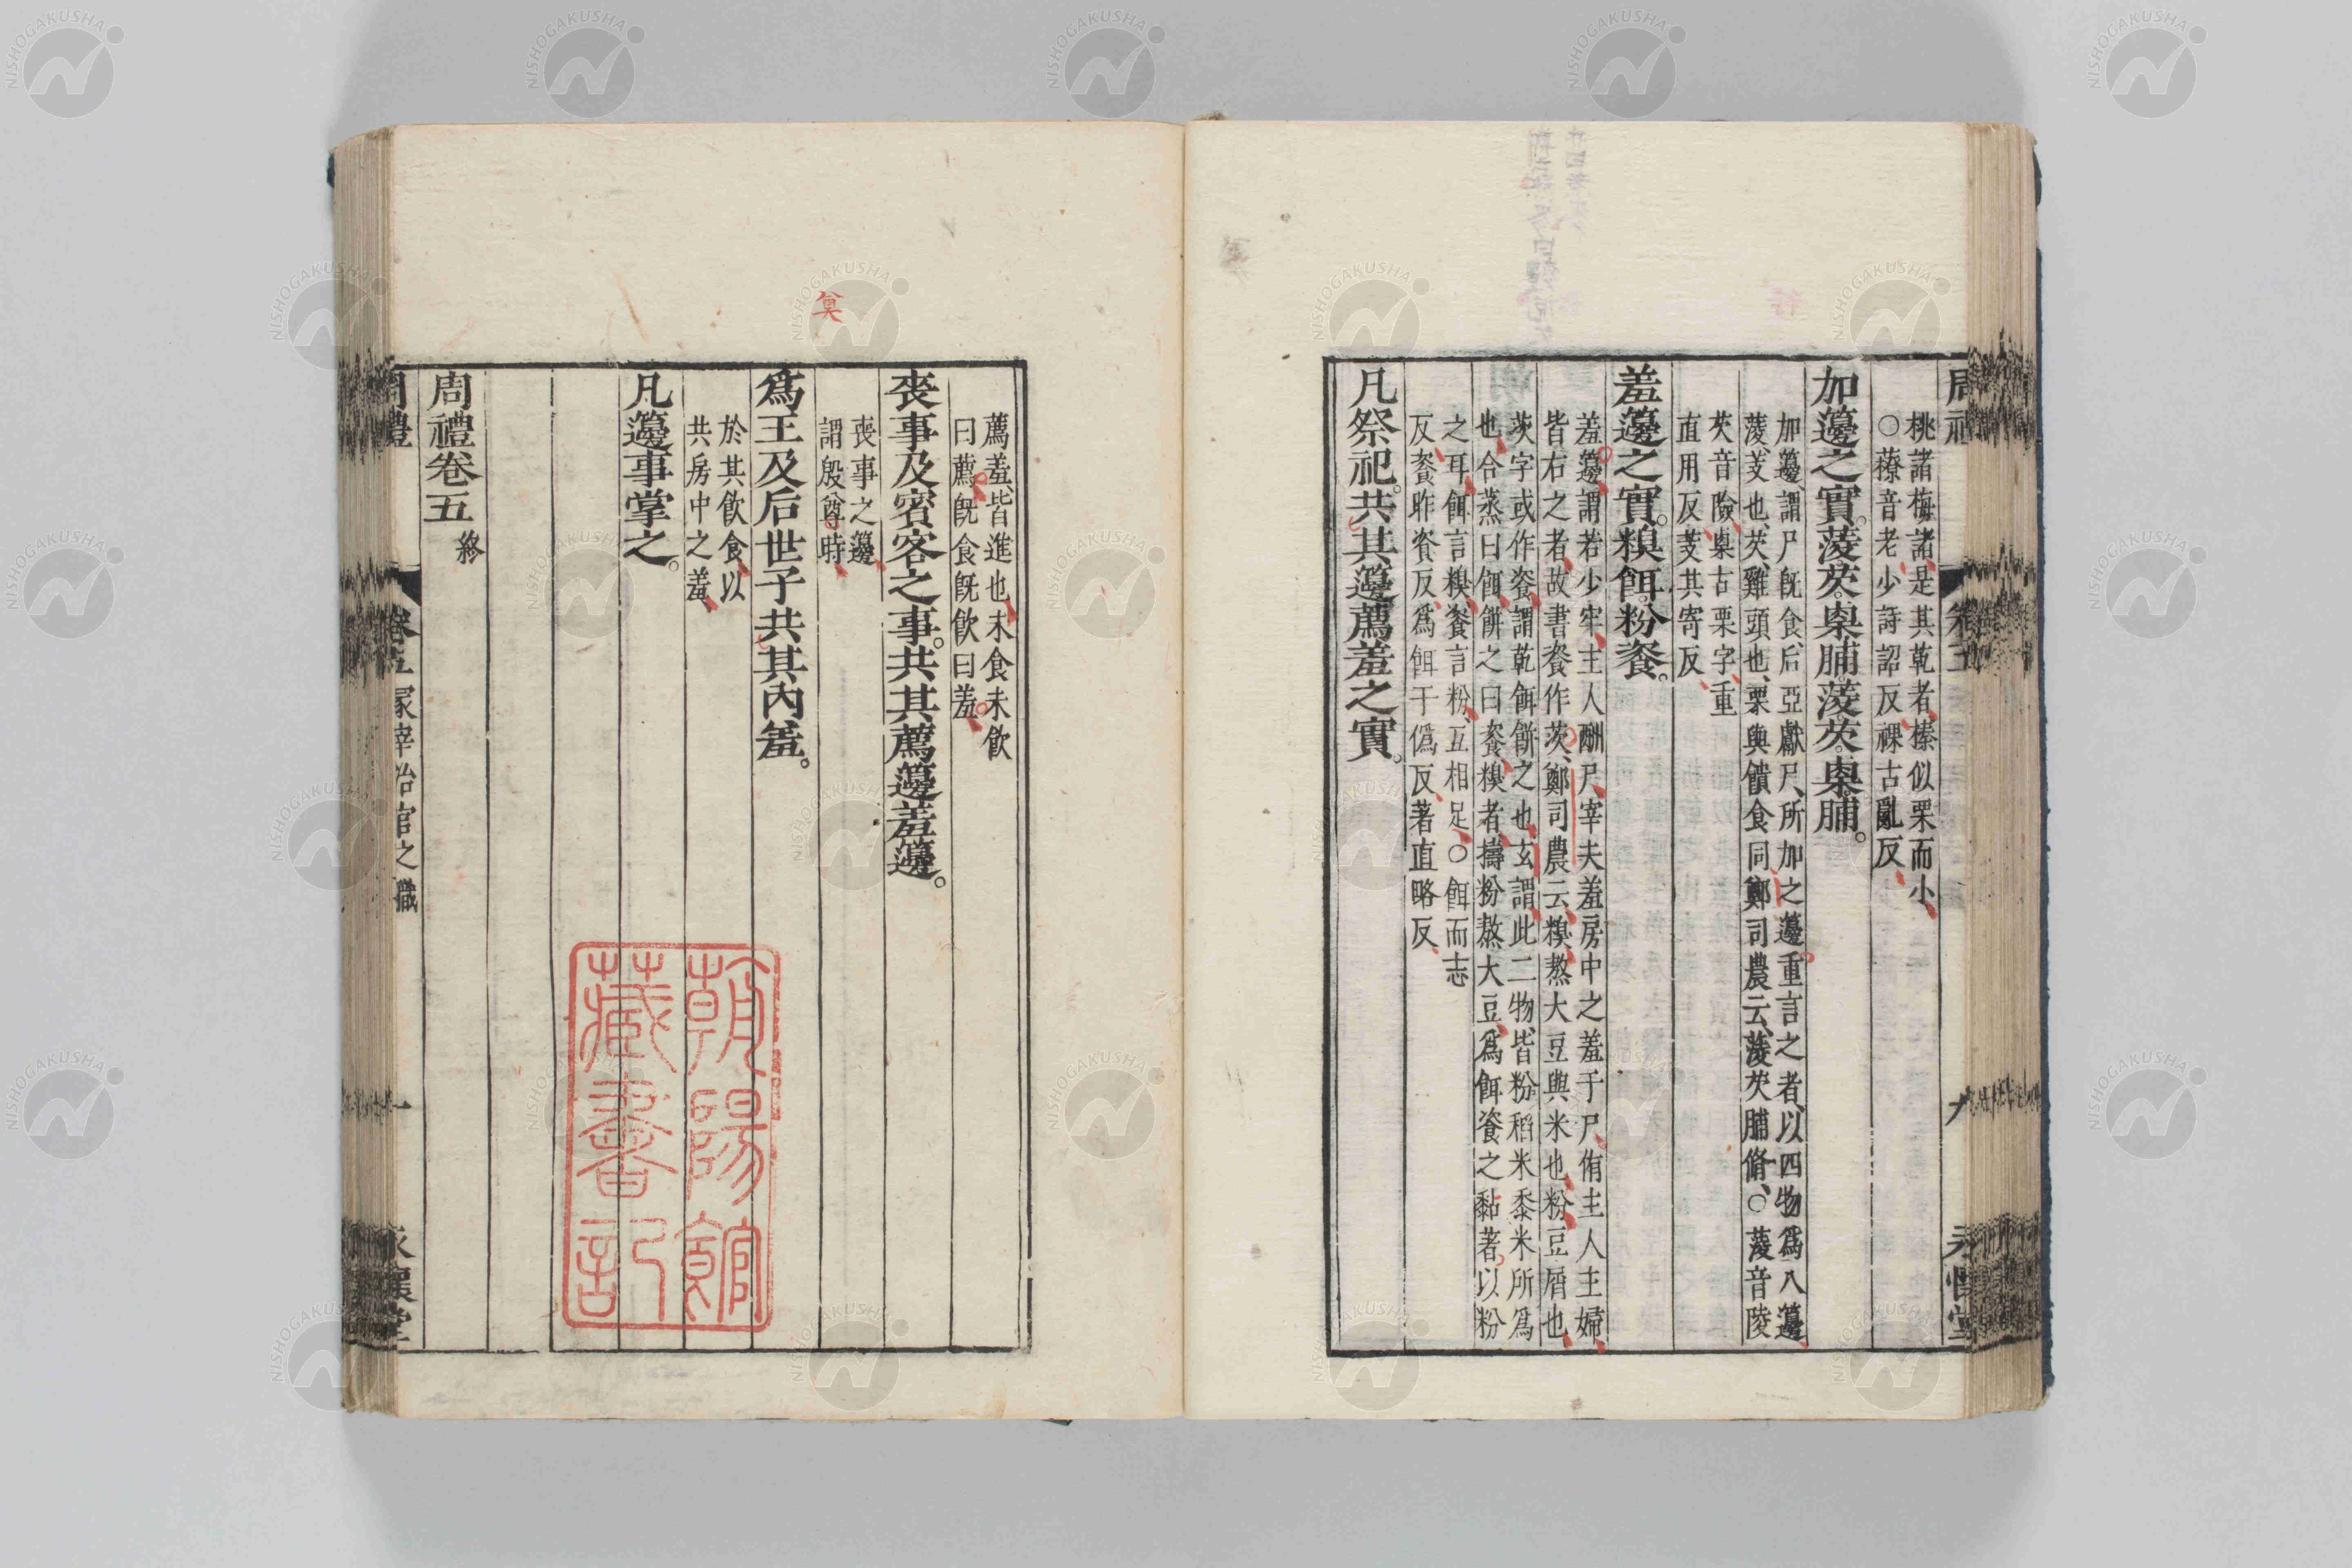 桃諸梅諸是其乾者榛似栗而小
○䕩音老少詩詔反祼古亂反
加籩之實蔆芡㮚脯蔆芡㮚脯
加籩謂尸既食后亞獻尸所加之籩重言之者以四物爲八籩
蔆芰也芡雞頭也栗與饋食同鄭司農云蔆芡脯脩○蔆音陵
芡音險㮚古栗字重
直用反芰其寄反
羞籩之實糗餌粉餈
羞籩謂若少牢主人酬尸宰夫羞房中之羞于尸侑主人主婦
皆右之者故書餈作茨鄭司農云糗熬大豆與米也粉豆屑也
茨字或作餈謂乾餌餅之也玄謂此二物皆粉稻米黍米所爲
也合蒸曰餌餅之曰餈糗者擣粉熬大豆爲餌餈之黏著以粉
之耳餌言糗餈言粉互相足○餌而志
反餈昨餈反爲餌干僞反著直略反
凡祭祀共其籩薦羞之實
薦羞皆進也未食未飲
曰薦既食既飲曰羞
喪事及賓客之事共其薦籩羞籩
喪事之籩
謂殷奠時
爲王及后世子共其內羞
於其飲食以
共房中之羞
凡籩事掌之
周禮卷五 終
周禮 卷五 冢宰治官之職 十 永懷堂
奠
朝陽館
藏書記
NISHOGAKUSHA